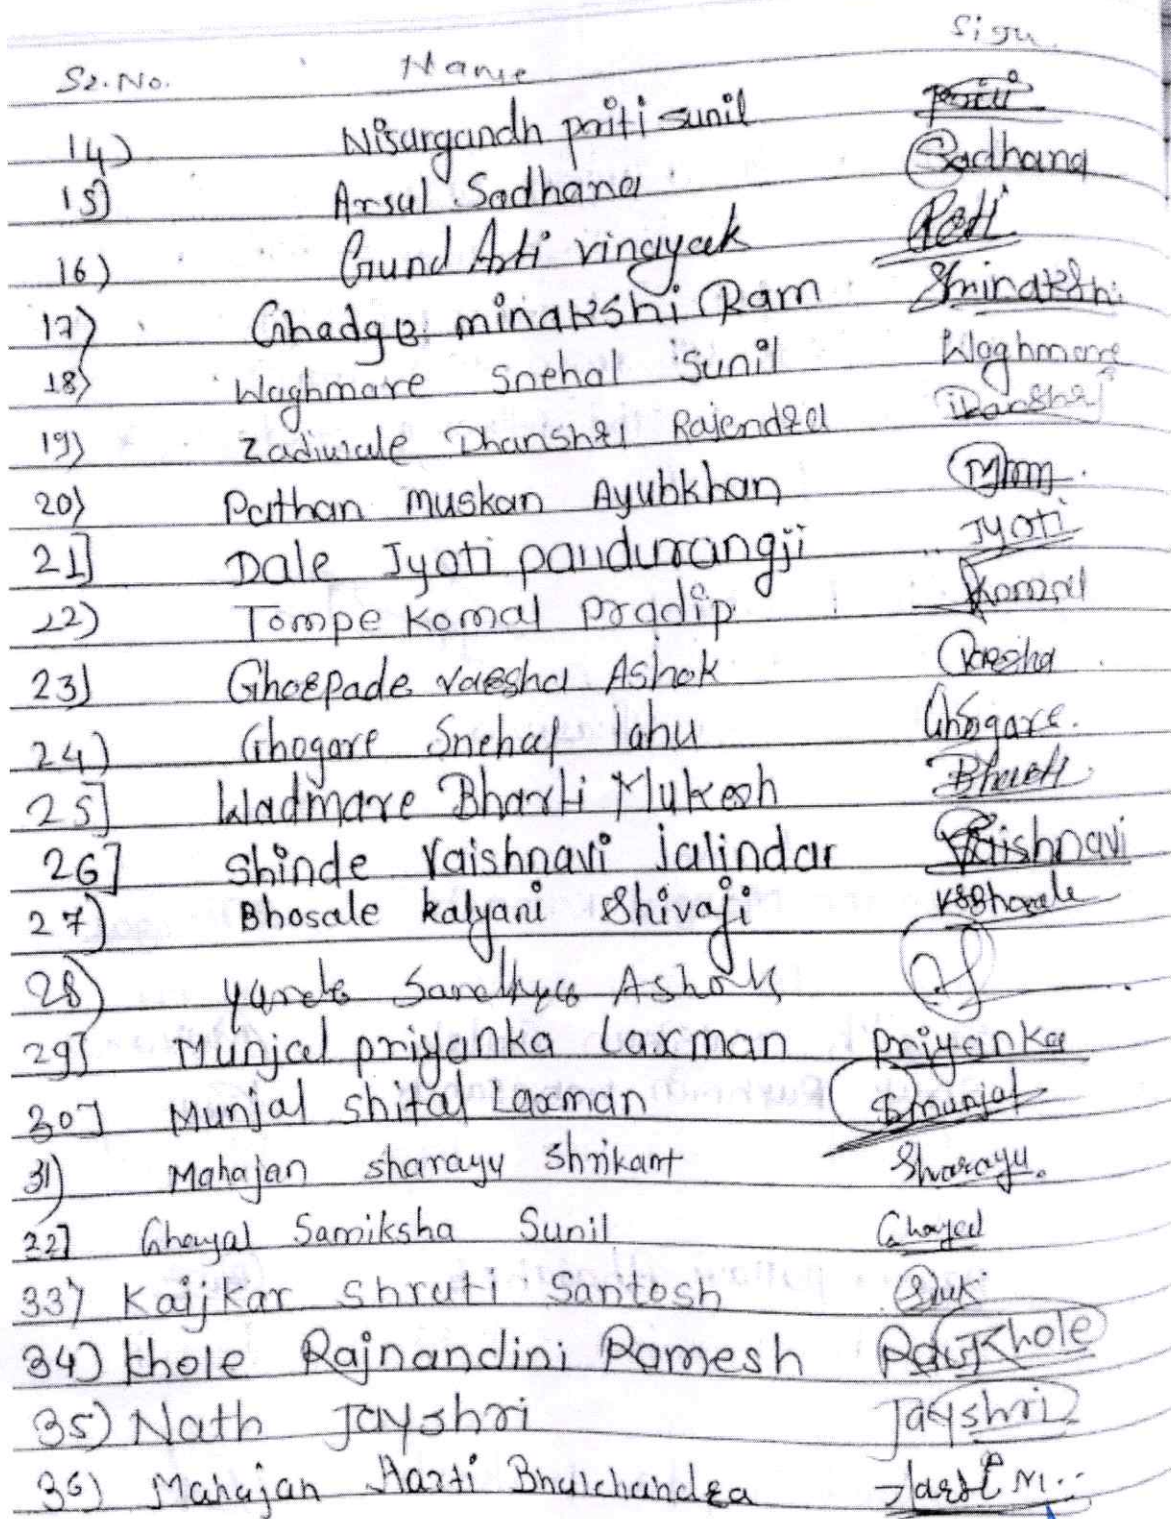 Sr. No. Name Sign
14) Nisargandh priti sunil Priti
15) Arsul Sadhana Sadhana
16) Gund Arti vinayak
17) Ghadge minakshi Ram Sminakshi
18) Waghmare Snehal Sunil Waghmare
19) Zadiwale Dhanshri Rajendra Danshri
20) Pathan muskan Ayubkhan
21] Dale Jyoti pandurangji Jyoti
22) Tompe Komal pradip Komal
23) Ghorpade varsha Ashok Varsha
24) Ghogare Snehal lahu Ghogare.
25] Wadmare Bharti Mukesh Bharti
26] Shinde Vaishnavi jalindar Vaishnavi
27) Bhosale kalyani Shivaji KSBhosale
28) Sandhya Ashok
29] Munjal priyanka Laxman Priyanka
30] Munjal shital Laxman Smunjal
31) Mahajan sharayu Shrikant Sharayu.
22] Ghayal Samiksha Sunil Ghayal
33) Kajjkar Shruti Santosh
34) Khole Rajnandini Ramesh Khole
35) Nath Jayshri Jayshri
36) Mahajan Aarti Bhalchandra Aarti M..